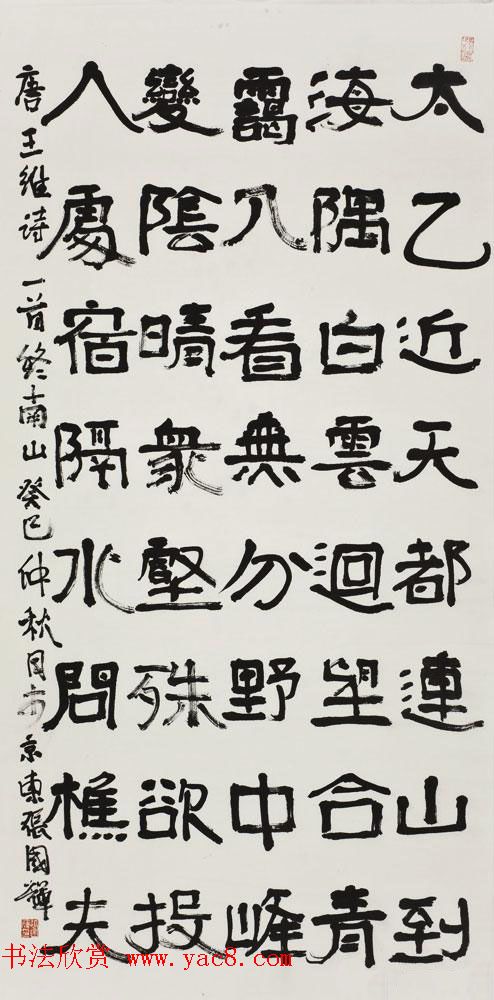 太乙近天都連山到
海隅白雲迴望合青
靄入看無分野中峰
變陰晴衆壑殊欲投
人處宿隔水問樵夫
唐王維诗一首終南山癸巳仲秋月於京東張國輝
书法欣赏 www.yac8.com